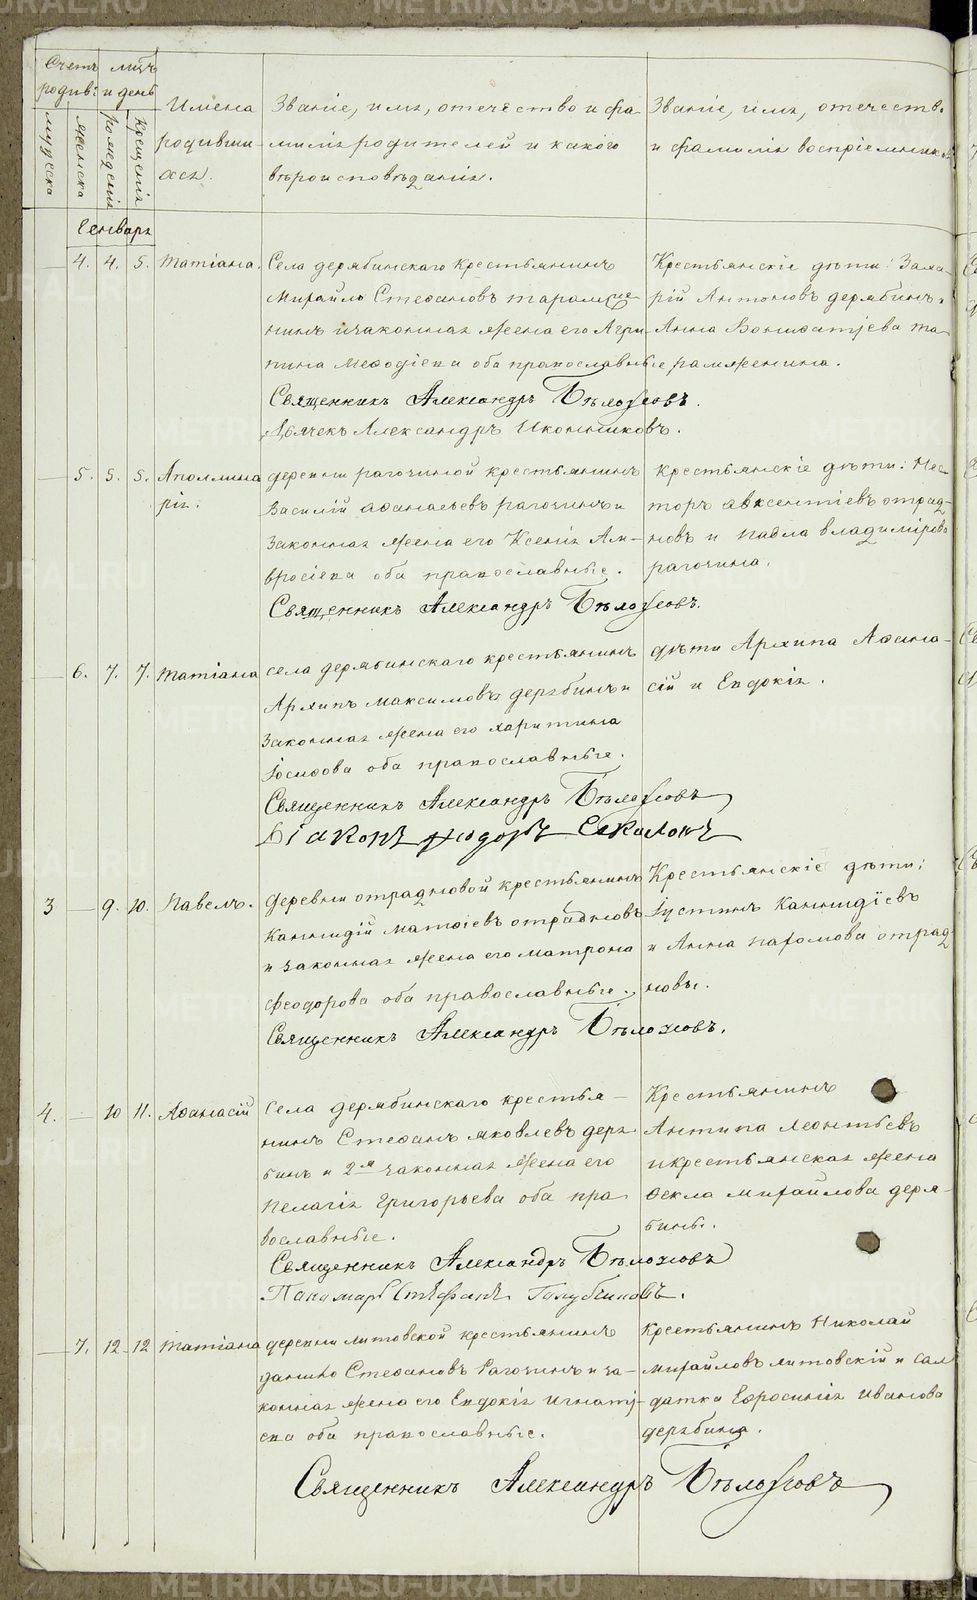 METRIKI.GASU-URAL.RU
Счетъ родив:
мужеска
женска
мѣсяцъ и день
рожденія
крещенія
Имена
родивши
хся.
Званіе, имя, отечество и фа-
милія родителей и какого
вѣроисповѣданія.
Званіе, имя, отечество
и фамилія воспріемниковъ
Генварь
4. 4. 5. Татіана.
Села дерябинскаго крестьянинъ
Михайло Стефановъ
нинъ и законная жена его Агри
пина Меѳодіева оба православные
Священникъ Александръ Бѣлоусовъ.
Дьячекъ Александръ Иконниковъ.
Крестьянскіе дѣти: Заха-
рій Антоновъ дерябинъ и
Анна Вонифатіева
5. 5. 5. Аполлина
рія.
деревни рагозиной крестьянинъ
Василій Аѳанасьевъ рагозинъ и
законная жена его Ксенія Ам-
вросіева оба православные.
Священникъ Александръ Бѣлоусовъ.
крестьянскіе дѣти: Нес-
торъ Авксентіевъ отрад-
новъ и Павла владимірова
рагозина.
6. 7. 7. Татіана
села дерябинскаго крестьянинъ
Архипъ Максимовъ дерябинъ и
законная жена его харитина
Іосифова оба православные.
Священникъ Александръ Бѣлоусовъ
Діаконъ Ѳеодоръ Соколовъ
дѣти Архипа Аѳана-
сій и Евдокія.
3 9. 10. Павелъ.
деревни отрадновой крестьянинъ
Каллидій Матѳіевъ отрадновъ
и законная жена его матрона
феодорова оба православные.
Священникъ Александръ Бѣлоусовъ.
Крестьянскіе дѣти:
Іустинъ
и Анна пахомова отрад
новы.
4. 10 11. Аѳанасій
Села дерябинскаго крестья-
нинъ Стефанъ яковлевъ деря
бинъ и 2я законная жена его
Пелагія Григорьева оба пра
вославные.
Священникъ Александръ Бѣлоусовъ
Панамарь Стефанъ Голубчиковъ.
Крестьянинъ
Антипа Леонтьевъ
и крестьянская жена
Ѳекла михайлова деря-
бины.
7. 12 12 Татіана
деревни литовской крестьянинъ
данило Стефановъ Рагозинъ и за-
конная жена его Евдокія Игнаті-
ева оба православные.
Священникъ Александръ Бѣлоусовъ
Крестьянинъ Николай
михайловъ литовскій и сал
датка Ефросинія Иванова
дерябина.